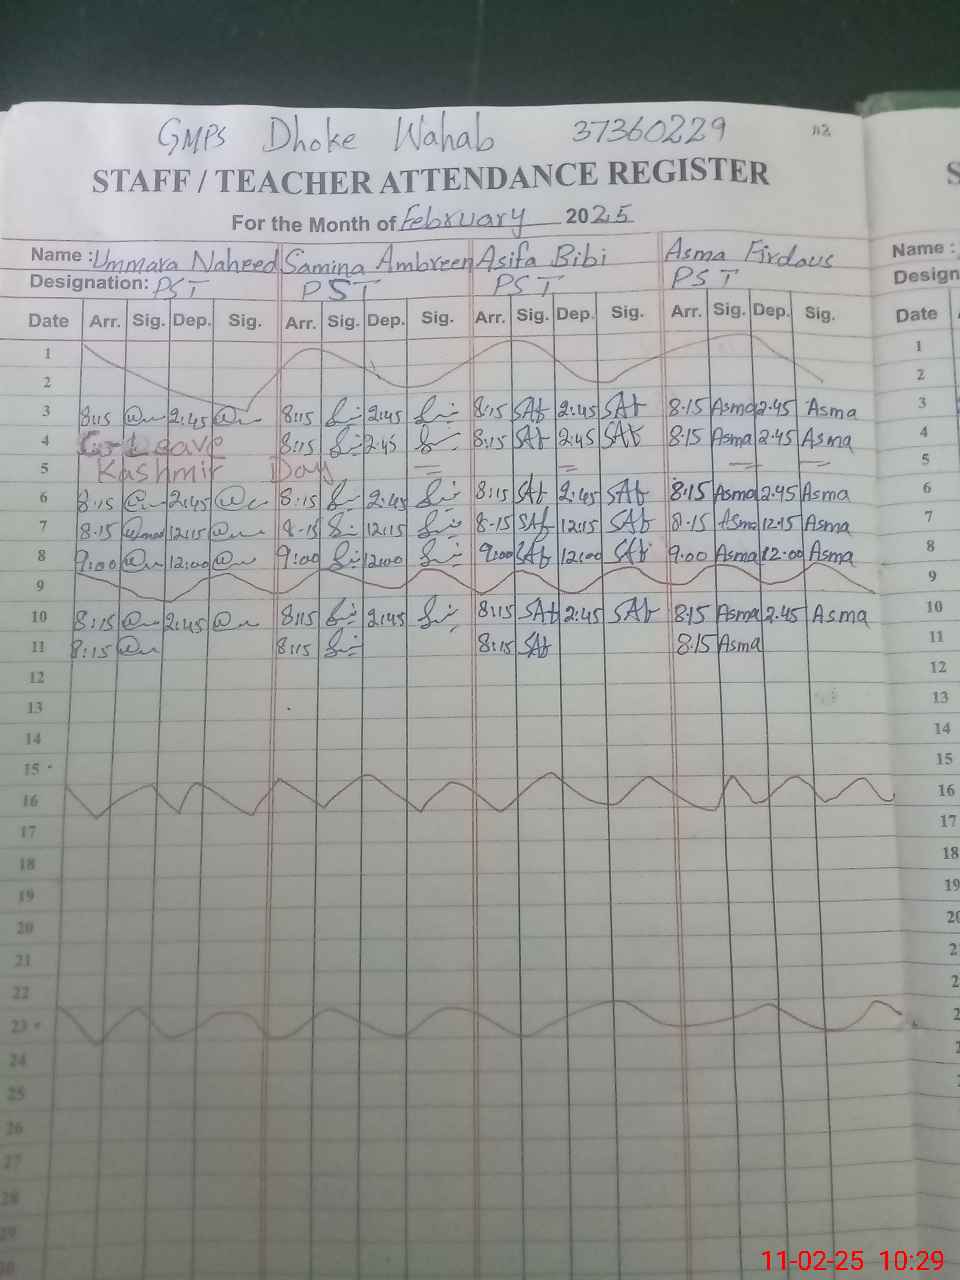 GMPS Dhoke Wahab 37360229 112
STAFF / TEACHER ATTENDANCE REGISTER S
For the Month of February 2025
Name : Ummara Naheed Samina Ambreen Asifa Bibi Asma Firdous Name :
Designation: PST PST PST PST Design
Date Arr. Sig. Dep. Sig. Arr. Sig. Dep. Sig. Arr. Sig. Dep. Sig. Arr. Sig. Dep. Sig. Date
1 1
2 2
3 8:15 2:45 8:15 2:45 8:15 SAb 2:45 SAb 8.15 Asma 2.45 Asma 3
4 Leave 8:15 2:45 8:15 SAb 2:45 SAb 8.15 Asma 2.45 Asma 4
5 Kashmir Day 5
6 8:15 2:45 8:15 2:45 8:15 SAb 2:45 SAb 8.15 Asma 2.45 Asma 6
7 8-15 12:15 8-15 12:15 8-15 SAb 12:15 SAb 8.15 Asma 12.15 Asma 7
8 9:00 12:00 9:00 12:00 9:00 SAb 12:00 SAb 9.00 Asma 12:00 Asma 8
9 9
10 8:15 2:45 8:15 2:45 8:15 SAb 2:45 SAb 8.15 Asma 2.45 Asma 10
11 8:15 8:15 8:15 SAb 8.15 Asma 11
12 12
13 13
14 14
15 15
16 16
17 17
18 18
19 19
20 20
21 2
22 2
23 2
24
25
26
27
28
29
30
11-02-25 10:29